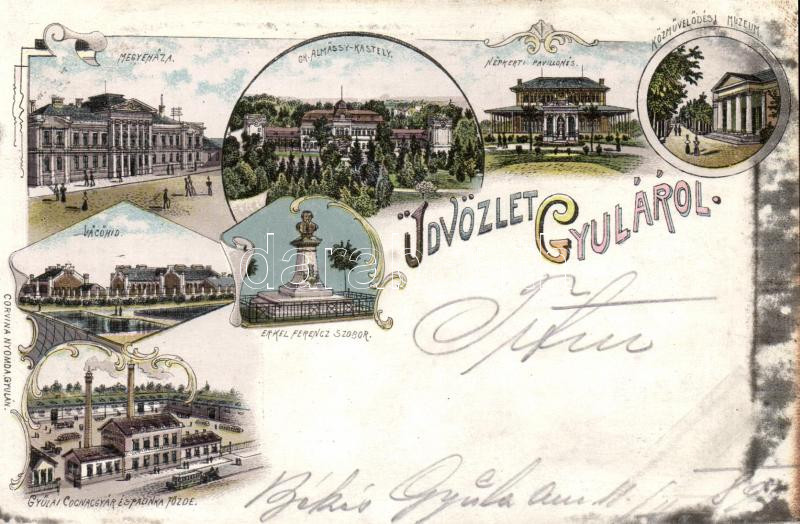 MEGYEHÁZA.
GR. ALMÁSSY-KASTÉLY.
NÉPKERTI PAVILLONÉS.
KÖZMŰVELŐDÉSI MUZEUM.
ÜDVÖZLET GYULÁROL.
VÁGÓHID
ERKEL FERENCZ SZOBOR.
CORVINA NYOMDA, GYULÁN.
GYULAI COGNACGYÁR ÉS PÁLINKA FŐZDE.
Békés Gyula am
darabanth